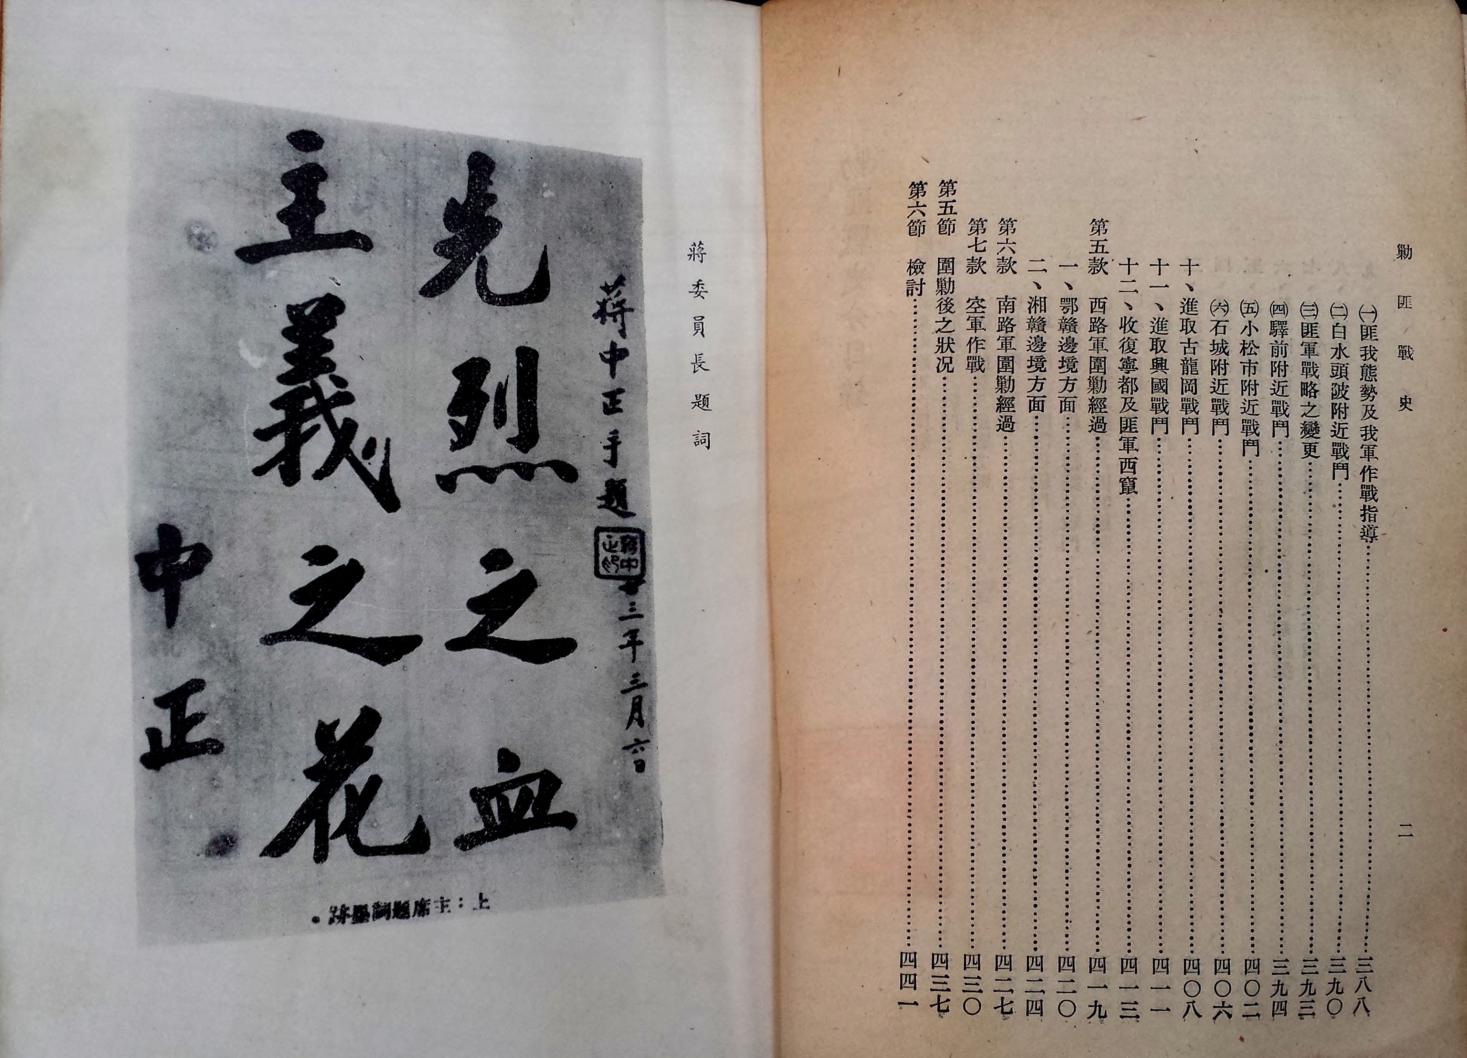 勦匪戰史
二
㈠匪我態勢及我軍作戰指導……三八八
㈡白水頭陂附近戰鬥……三九〇
㈢匪軍戰略之變更……三九三
㈣驛前附近戰鬥……三九四
㈤小松市附近戰鬥……四〇二
㈥石城附近戰鬥……四〇六
十、進取古龍岡戰鬥……四〇八
十一、進取興國戰鬥……四一一
十二、收復寧都及匪軍西竄……四一三
第五款 西路軍圍勦經過……四一九
一、鄂贛邊境方面……四二〇
二、湘贛邊境方面……四二四
第六款 南路軍圍勦經過……四二七
第七款 空軍作戰……四三〇
第五節 圍勦後之狀況……四三七
第六節 檢討……四四一
蔣委員長題詞
蔣中正手題
三年三月六日
先烈之血
主義之花
中正
上：主席題詞墨跡。